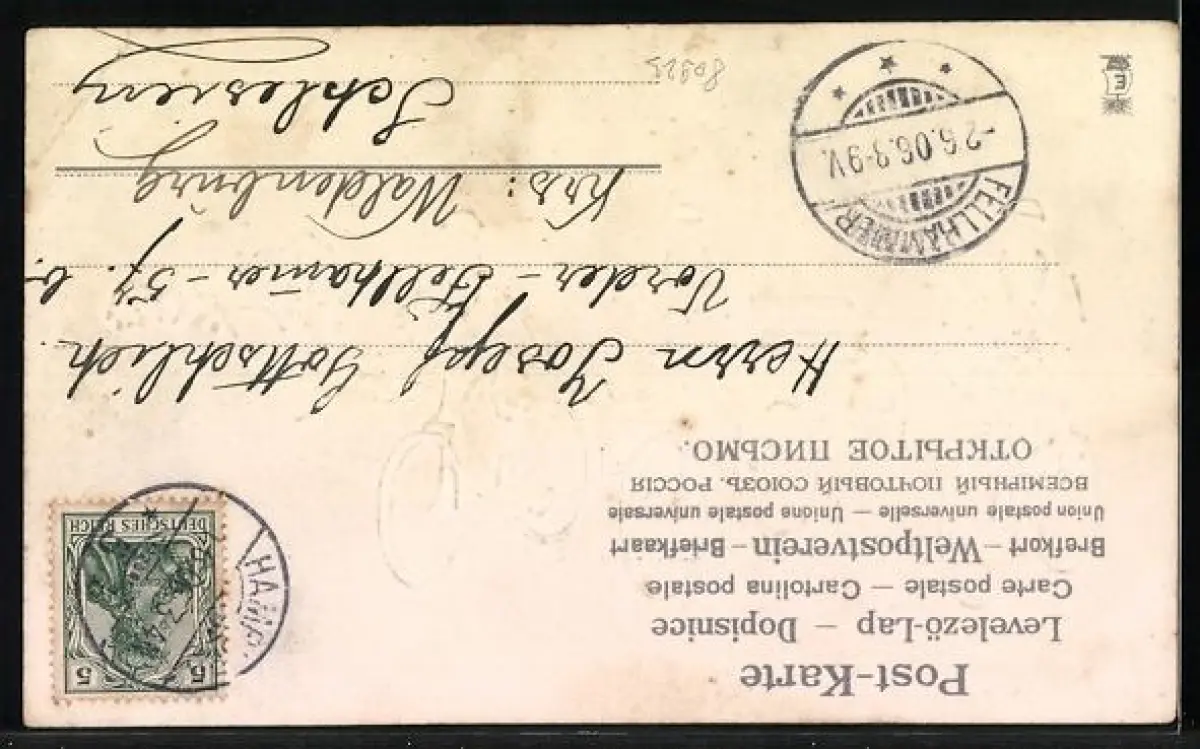 Post-Karte
Levelező-Lap — Dopisnice
Carte postale — Cartolina postale
Brefkort — Weltpostverein — Briefkaart
Union postale universelle — Unione postale universale
ВСЕМІРНЫЙ ПОЧТОВЫЙ СОЮЗЪ. РОССІЯ
ОТКРЫТОЕ ПИСЬМО.
DEUTSCHES REICH
5 5
Herrn Joseph Gottschlich
Vorder-Fellham̄er - 57. b.
Krs: Waldenburg
Schlesien
FELLHAMMER
-2.6.06.8-9V.
80923
E